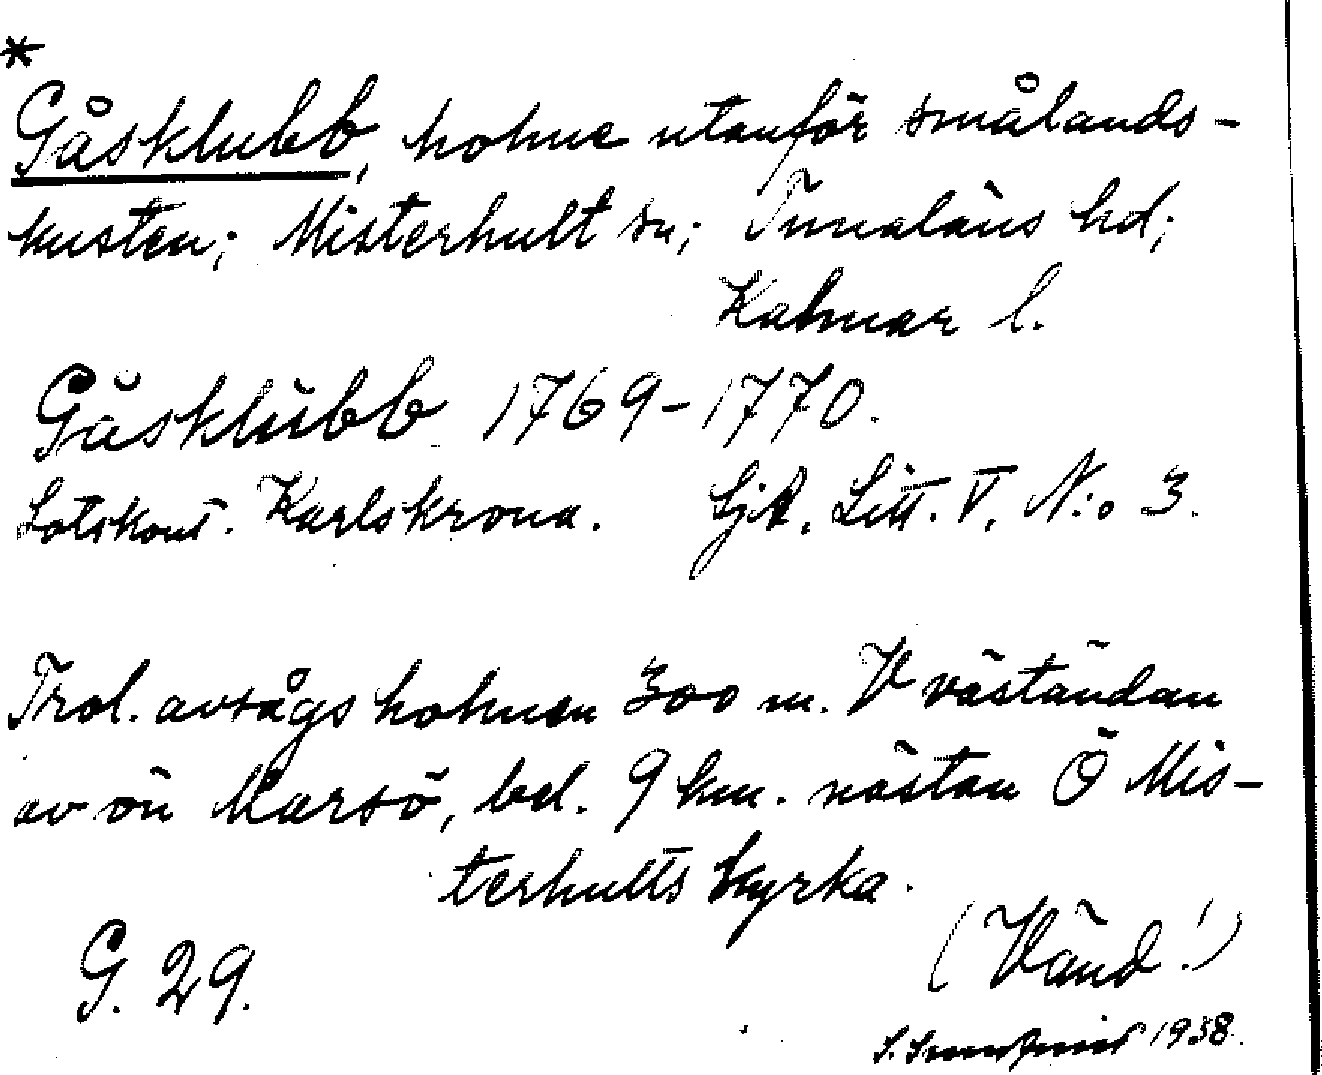 *
Gåsklubb, holme utanför smålands-
kusten; Misterhult sn; Tunaläns hd;
Kalmar l.
Gåsklubb 1769-1770.
Lotskont. Karlskrona. SjA. Litt. V, N:o 3.
Trol. avsågs holmen 300 m. V väständan
av ön Marsö, bel. 9 km. nästan Ö Mis-
terhults kyrka.
(Vänd!)
G. 29.
S. 1938.